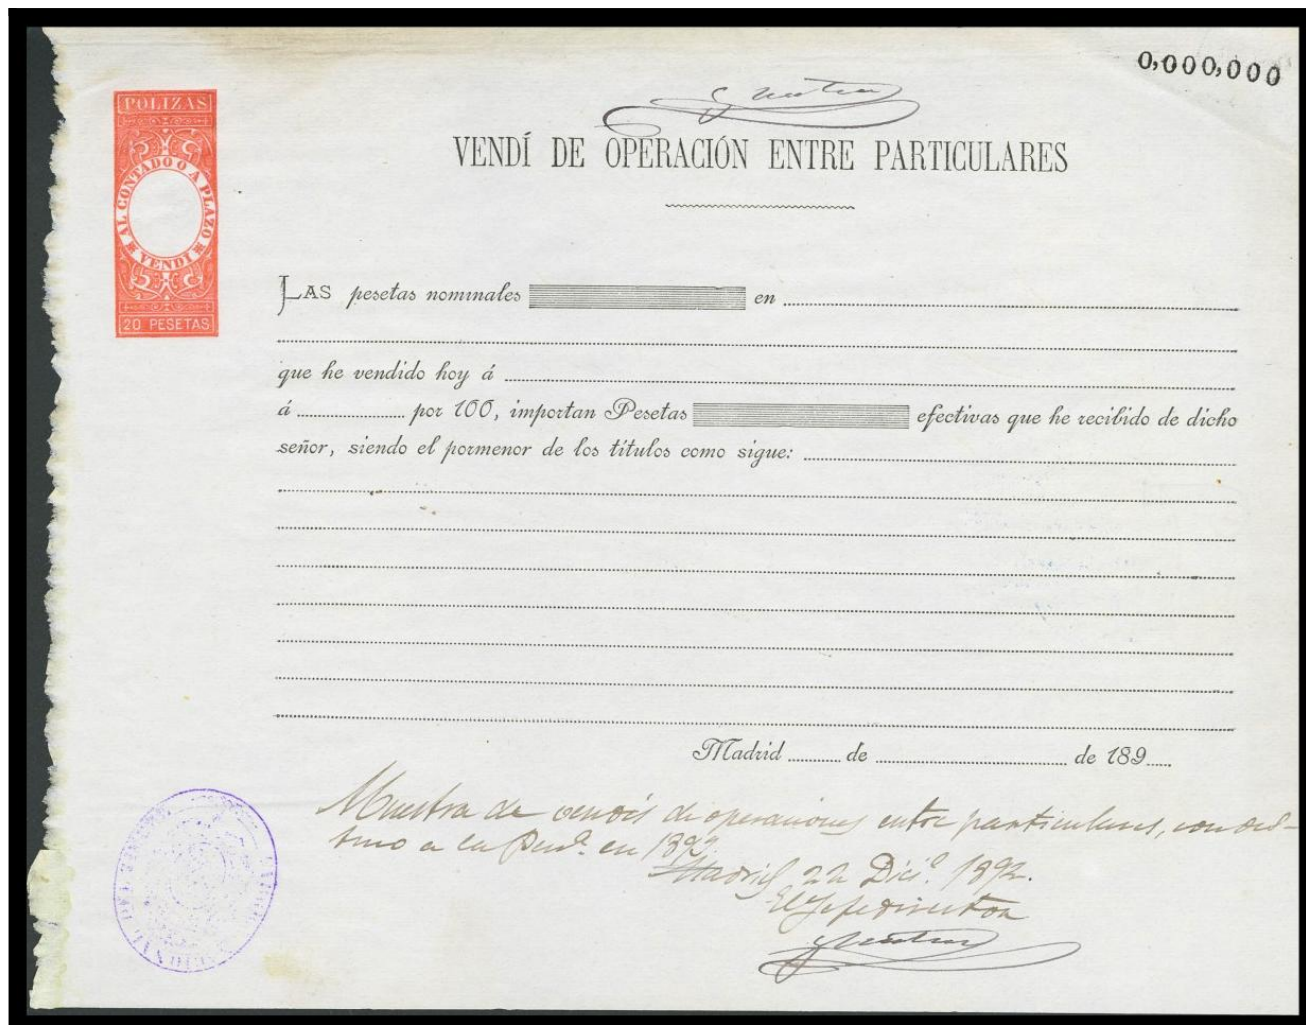 0,000,000
POLIZAS
AL CONTADO O A PLAZO
VENDI
20 PESETAS
VENDÍ DE OPERACIÓN ENTRE PARTICULARES
LAS pesetas nominales en
que he vendido hoy á
á por 100, importan Pesetas efectivas que he recibido de dicho
señor, siendo el pormenor de los títulos como sigue:
Madrid de de 189
Muestra de vendís de operaciones entre particulares, con des-
tino a la en
Madrid 22 Dic.e 1892.
El Jefe director